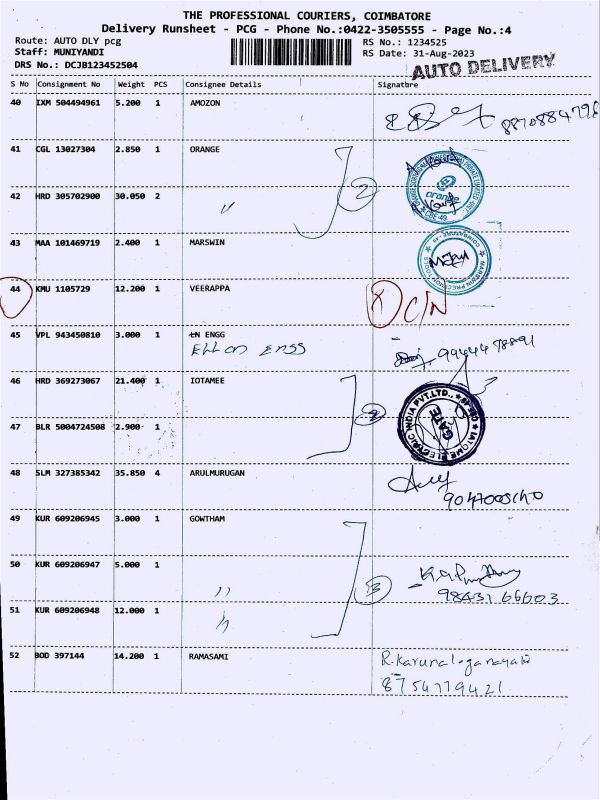 THE PROFESSIONAL COURIERS, COIMBATORE
Delivery Runsheet - PCG - Phone No.:0422-3505555 - Page No.:4
Route: AUTO DLY pcg RS No.: 1234525
Staff: MUNIYANDI RS Date: 31-Aug-2023
DRS No.: DCJB123452504 AUTO DELIVERY
S No Consignment No Weight PCS Consignee Details Signature
40 IXM 504494961 5.200 1 AMOZON
8870884796
41 CGL 13027304 2.850 1 ORANGE
2
orange
CBE-49
42 HRD 305702900 30.050 2 "
43 MAA 101469719 2.400 1 MARSWIN
44 KMU 1105729 12.200 1 VEERAPPA X C/N
45 VPL 943450810 3.000 1 LN ENGG
Ellen Engg
46 HRD 369273067 21.400 1 IOTAMEE
2
GATE
47 BLR 5004724508 2.900 1
48 SLM 327385342 35.850 4 ARULMURUGAN
49 KUR 609206945 3.000 1 GOWTHAM
50 KUR 609206947 5.000 1 "
3
98431 66603
51 KUR 609206948 12.000 1 "
52 BOD 397144 14.200 1 RAMASAMI R. Karunaloganayaki
8754779421